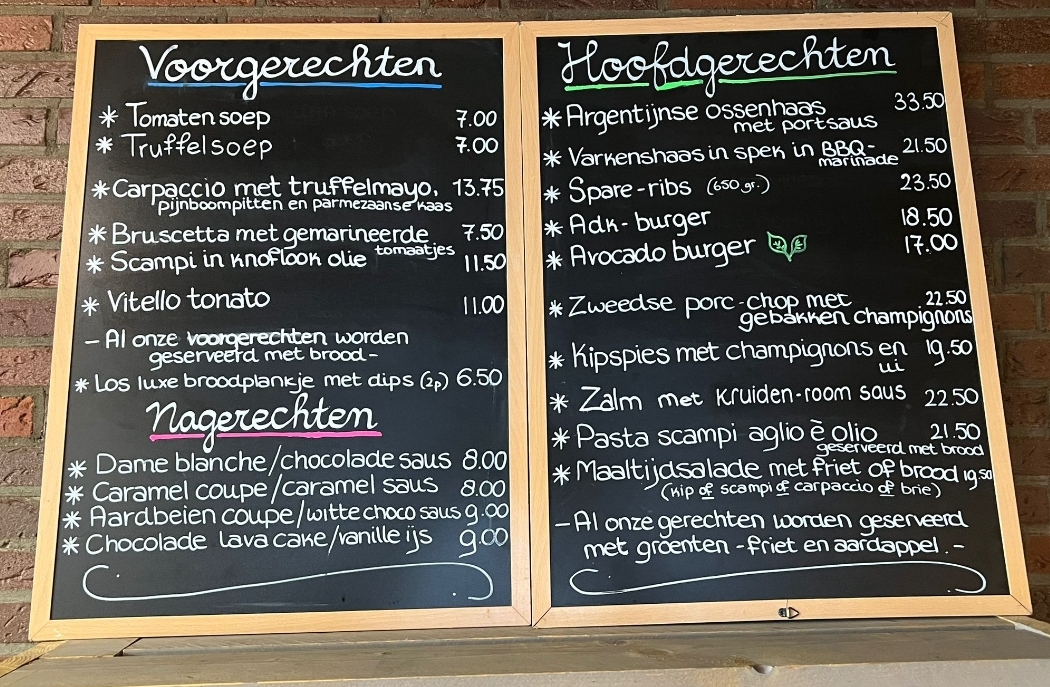 Voorgerechten
* Tomaten soep 7.00
* Truffelsoep 7.00
* Carpaccio met truffelmayo, 13.75
pijnboompitten en parmezaanse kaas
* Bruscetta met gemarineerde 7.50
tomaatjes
* Scampi in knoflook olie 11.50
* Vitello tonato 11.00
- Al onze voorgerechten worden
geserveerd met brood -
* Los luxe broodplankje met dips (2p) 6.50
Nagerechten
* Dame blanche/chocolade saus 8.00
* Caramel coupe/caramel saus 8.00
* Aardbeien coupe/witte choco saus 9.00
* Chocolade lava cake/vanille ijs 9.00
Hoofdgerechten
* Argentijnse ossenhaas 33.50
met portsaus
* Varkenshaas in spek in BBQ- 21.50
marinade
* Spare-ribs (650 gr.) 23.50
* Adk-burger 18.50
* Avocado burger 17.00
* Zweedse porc-chop met 22.50
gebakken champignons
* Kipspies met champignons en 19.50
ui
* Zalm met kruiden-room saus 22.50
* Pasta scampi aglio è olio 21.50
geserveerd met brood
* Maaltijdsalade met friet of brood 19.50
(kip of scampi of carpaccio of brie)
- Al onze gerechten worden geserveerd
met groenten - friet en aardappel. -